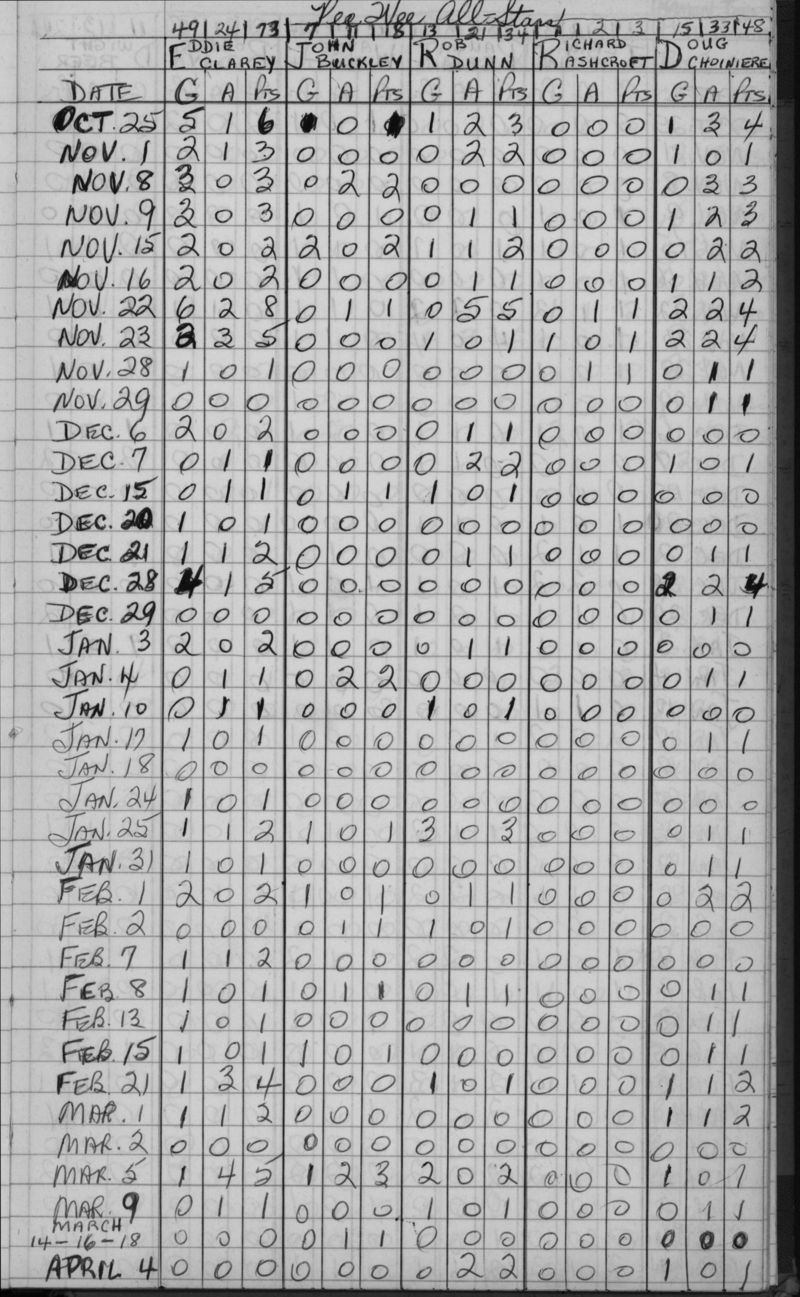 Pee Wee All-Stars
49 24 73 7 11 18 13 21 34 1 2 3 15 33 48
EDDIE CLAREY JOHN BUCKLEY ROB DUNN RICHARD ASHCROFT DOUG CHOINIERE
DATE G A Pts G A Pts G A Pts G A Pts G A Pts
OCT. 25 5 1 6 0 1 2 3 0 0 0 1 3 4
NOV. 1 2 1 3 0 0 0 0 2 2 0 0 0 1 0 1
NOV. 8 3 0 3 0 2 2 0 0 0 0 0 0 0 3 3
NOV. 9 3 0 3 0 0 0 0 1 1 0 0 0 1 2 3
NOV. 15 2 0 2 2 0 2 1 1 2 0 0 0 0 2 2
NOV. 16 2 0 2 0 0 0 0 1 1 0 0 0 1 1 2
NOV. 22 6 2 8 0 1 1 0 5 5 0 1 1 2 2 4
NOV. 23 2 3 5 0 0 0 1 0 1 1 0 1 2 2 4
NOV. 28 1 0 1 0 0 0 0 0 0 0 1 1 0 1 1
NOV. 29 0 0 0 0 0 0 0 0 0 0 0 0 0 1 1
DEC. 6 2 0 2 0 0 0 0 1 1 0 0 0 0 0 0
DEC. 7 0 1 1 0 0 0 0 2 2 0 0 0 1 0 1
DEC. 15 0 1 1 0 1 1 1 0 1 0 0 0 0 0 0
DEC. 20 1 0 1 0 0 0 0 0 0 0 0 0 0 0 0
DEC. 21 1 1 2 0 0 0 0 1 1 0 0 0 0 1 1
DEC. 28 4 1 5 0 0 0 0 0 0 0 0 0 2 2 4
DEC. 29 0 0 0 0 0 0 0 0 0 0 0 0 0 1 1
JAN. 3 2 0 2 0 0 0 0 1 1 0 0 0 0 0 0
JAN. 4 0 1 1 0 2 2 0 0 0 0 0 0 0 1 1
JAN. 10 0 1 1 0 0 0 1 0 1 0 0 0 0 0 0
JAN. 17 1 0 1 0 0 0 0 0 0 0 0 0 0 1 1
JAN. 18 0 0 0 0 0 0 0 0 0 0 0 0 0 0 0
JAN. 24 1 0 1 0 0 0 0 0 0 0 0 0 0 0 0
JAN. 25 1 1 2 1 0 1 3 0 3 0 0 0 0 1 1
JAN. 31 1 0 1 0 0 0 0 0 0 0 0 0 0 1 1
FEB. 1 2 0 2 1 0 1 0 1 1 0 0 0 0 2 2
FEB. 2 0 0 0 0 1 1 1 0 1 0 0 0 0 0 0
FEB. 7 1 1 2 0 0 0 0 0 0 0 0 0 0 0 0
FEB 8 1 0 1 0 1 1 0 1 1 0 0 0 0 1 1
FEB. 13 1 0 1 0 0 0 0 0 0 0 0 0 0 1 1
FEB. 15 1 0 1 1 0 1 0 0 0 0 0 0 0 1 1
FEB. 21 1 3 4 0 0 0 1 0 1 0 0 0 1 1 2
MAR. 1 1 1 2 0 0 0 0 0 0 0 0 0 1 1 2
MAR. 2 0 0 0 0 0 0 0 0 0 0 0 0 0 0 0
MAR. 5 1 4 5 1 2 3 2 0 2 0 0 0 1 0 1
MAR. 9 0 1 1 0 0 0 1 0 1 0 0 0 0 1 1
MARCH
14-16-18 0 0 0 0 1 1 0 0 0 0 0 0 0 0 0
APRIL 4 0 0 0 0 0 0 0 2 2 0 0 0 1 0 1